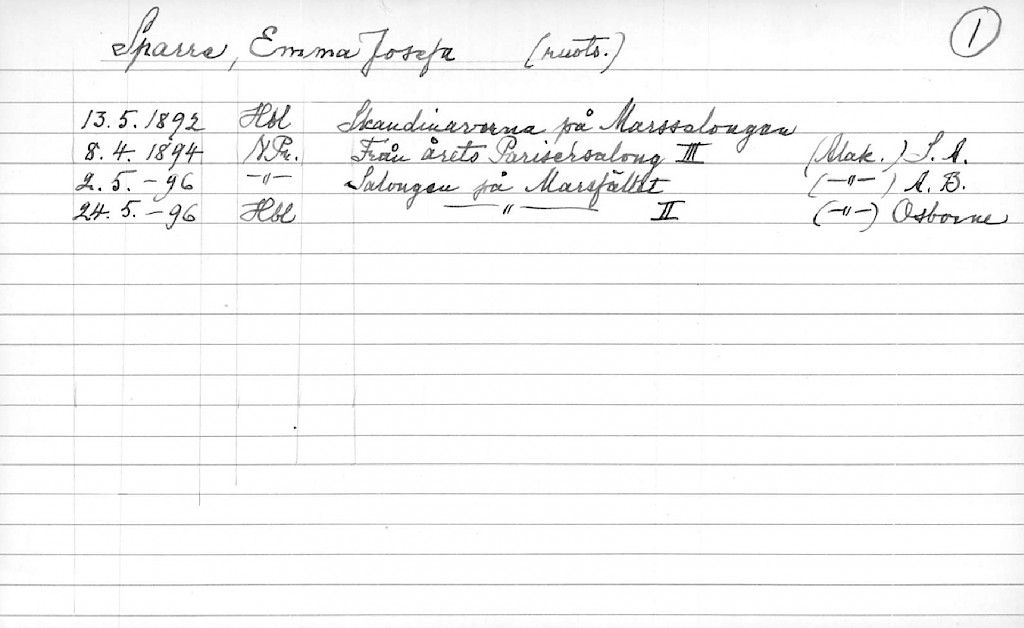 Sparre, Emma Josefa (ruots.) 1
13.5.1892 Hbl Skandinaverna på Marssalongen
8.4.1894 N.Pr. Från årets Parisersalong III (Alak.) S.A.
2.5.-96 -"- Salongen på Marsfältet (-"-) A.B.
24.5.-96 Hbl -"- II (-"-) Osborne